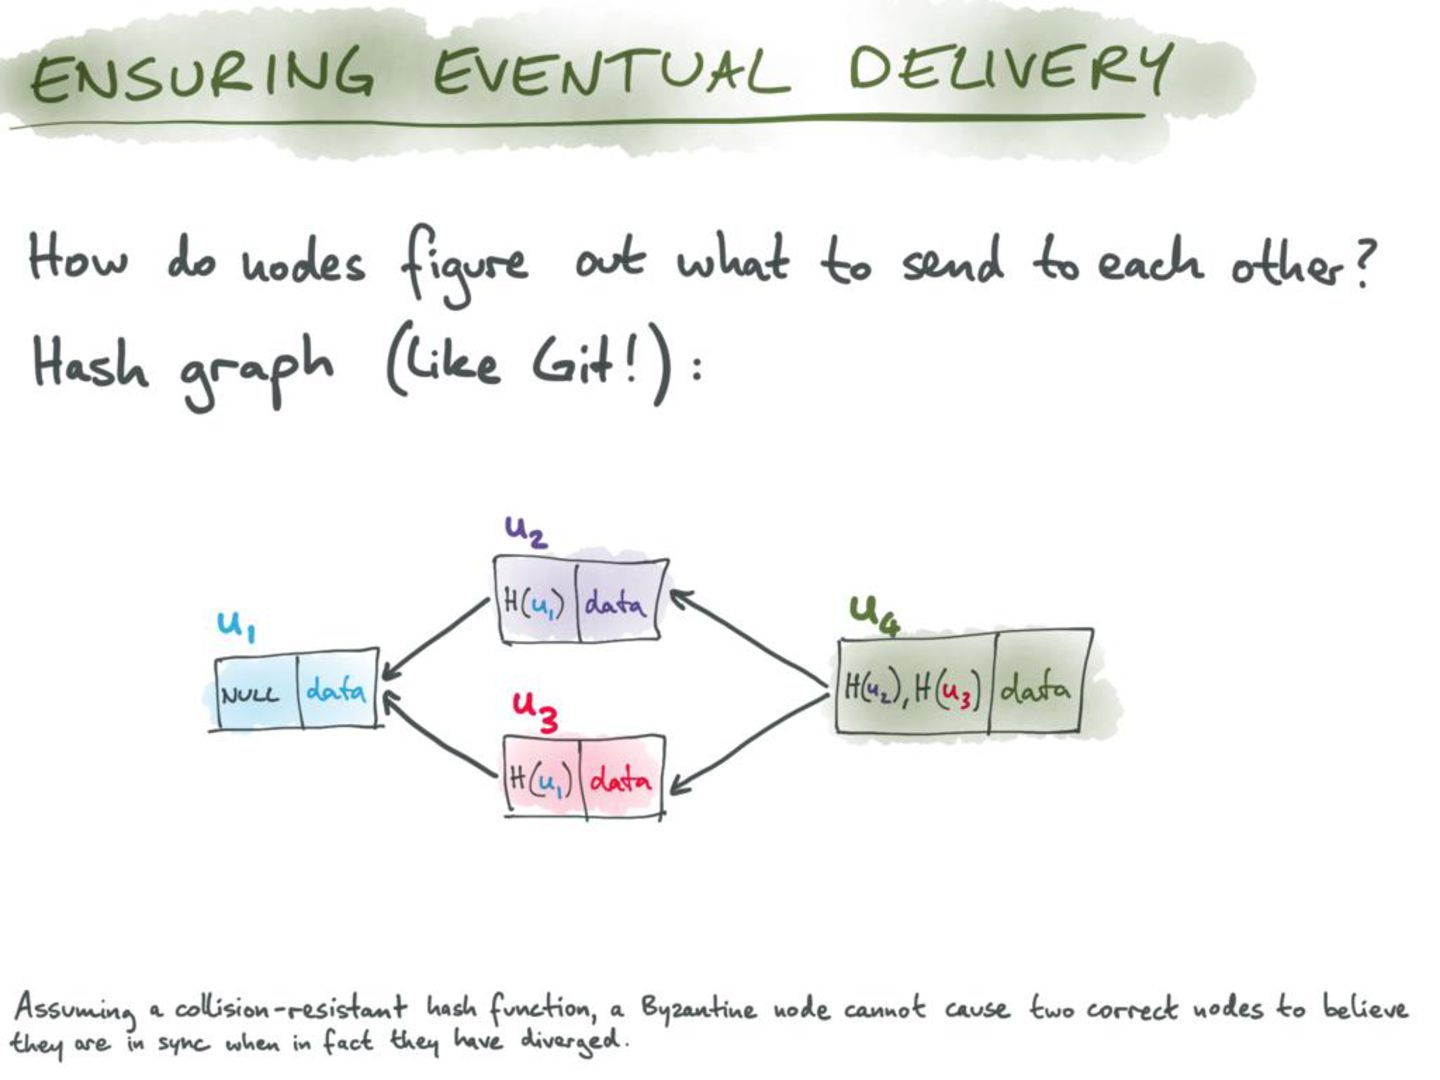 ENSURING EVENTUAL DELIVERY
How do nodes figure out what to send to each other?
Hash graph (like Git!):
u₂
H(u₁) data
u₁
NULL data
u₄
H(u₂), H(u₃) data
u₃
H(u₁) data
Assuming a collision-resistant hash function, a Byzantine node cannot cause two correct nodes to believe
they are in sync when in fact they have diverged.